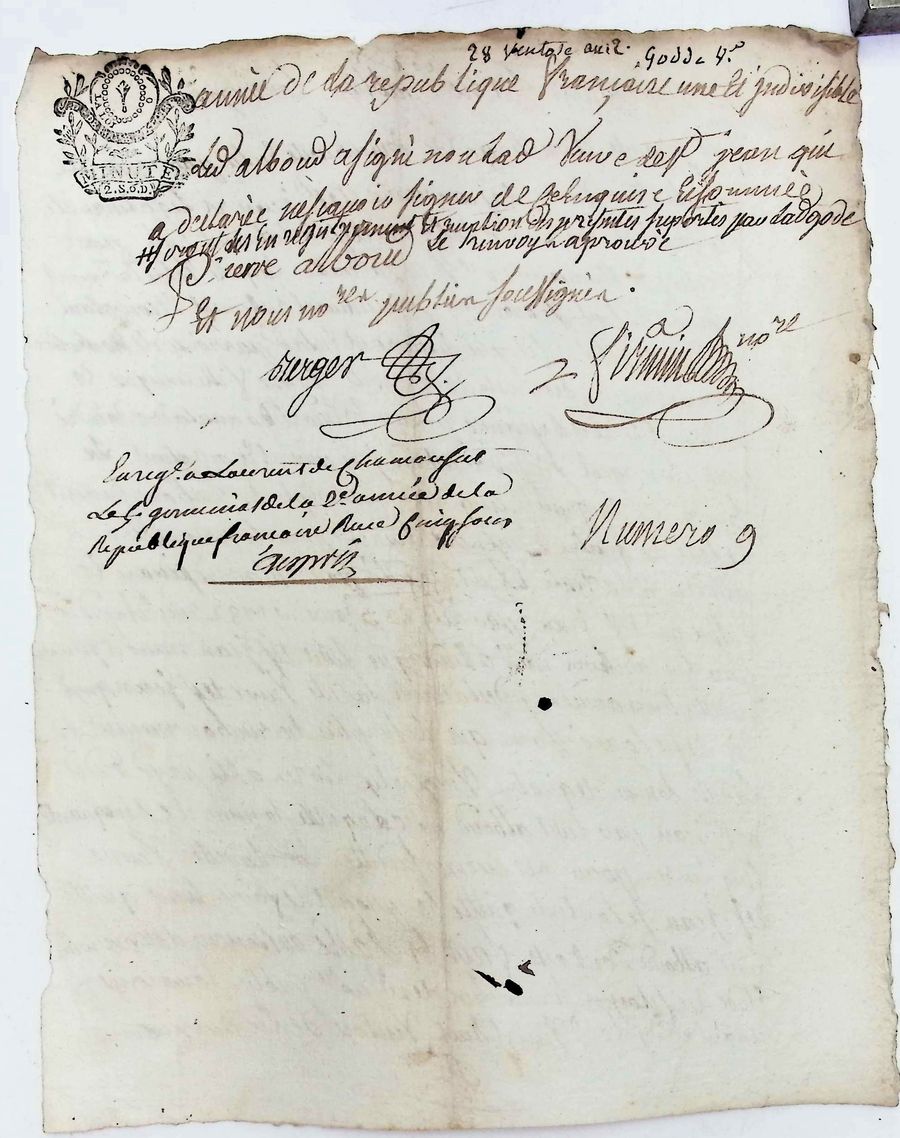 28 ventose an 2. Godde V.e
MINUTE
2.S.6.D.rs
année de la republique française une et indivisible
Led alboud a signé non lad veuve de St jean qui
a declarée ne scavoir signer de ce enquise et sommée
frais des enregistrement expedition des presentes suportés par lad gode
le renvoy aprouvé
Pierre alboud
Et nous no.re publicn soussignés.
verger
firmin no.re
Enreg.é a Laurent de Chamousset
Le 5 germinal de la 2e année de la
Republique francaise Receu Cinq sous
Numero 9